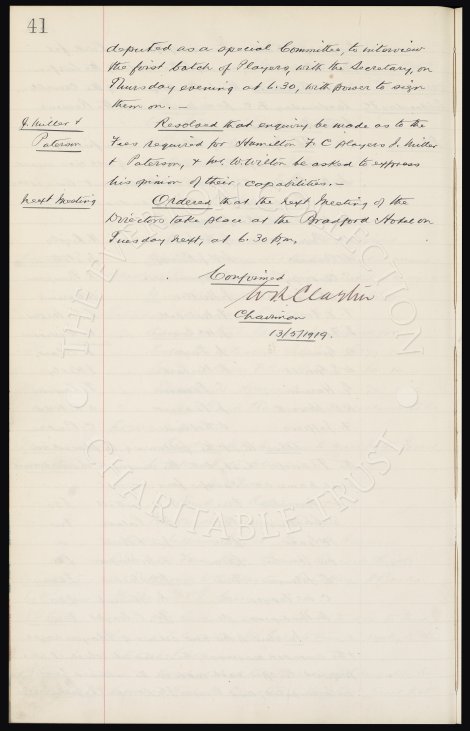 41
deputed as a special Committee, to interview
the first batch of Players, with the Secretary, on
Thursday evening at 6.30, with power to sign
them on. —
J. Miller &
Paterson
Resolved that enquiry be made as to the
Fees required for Hamilton F. C players J. Miller
& Paterson, & Mr W. Wilton be asked to express
his opinion of their capabilities. —
Next Meeting
Ordered that the next Meeting of the
Directors take place at the Bradford Hotel on
Tuesday next, at 6.30 P.m.
Confirmed
W R Clayton
Chairman
13/5/1919.
THE EVERTON COLLECTION
CHARITABLE TRUST